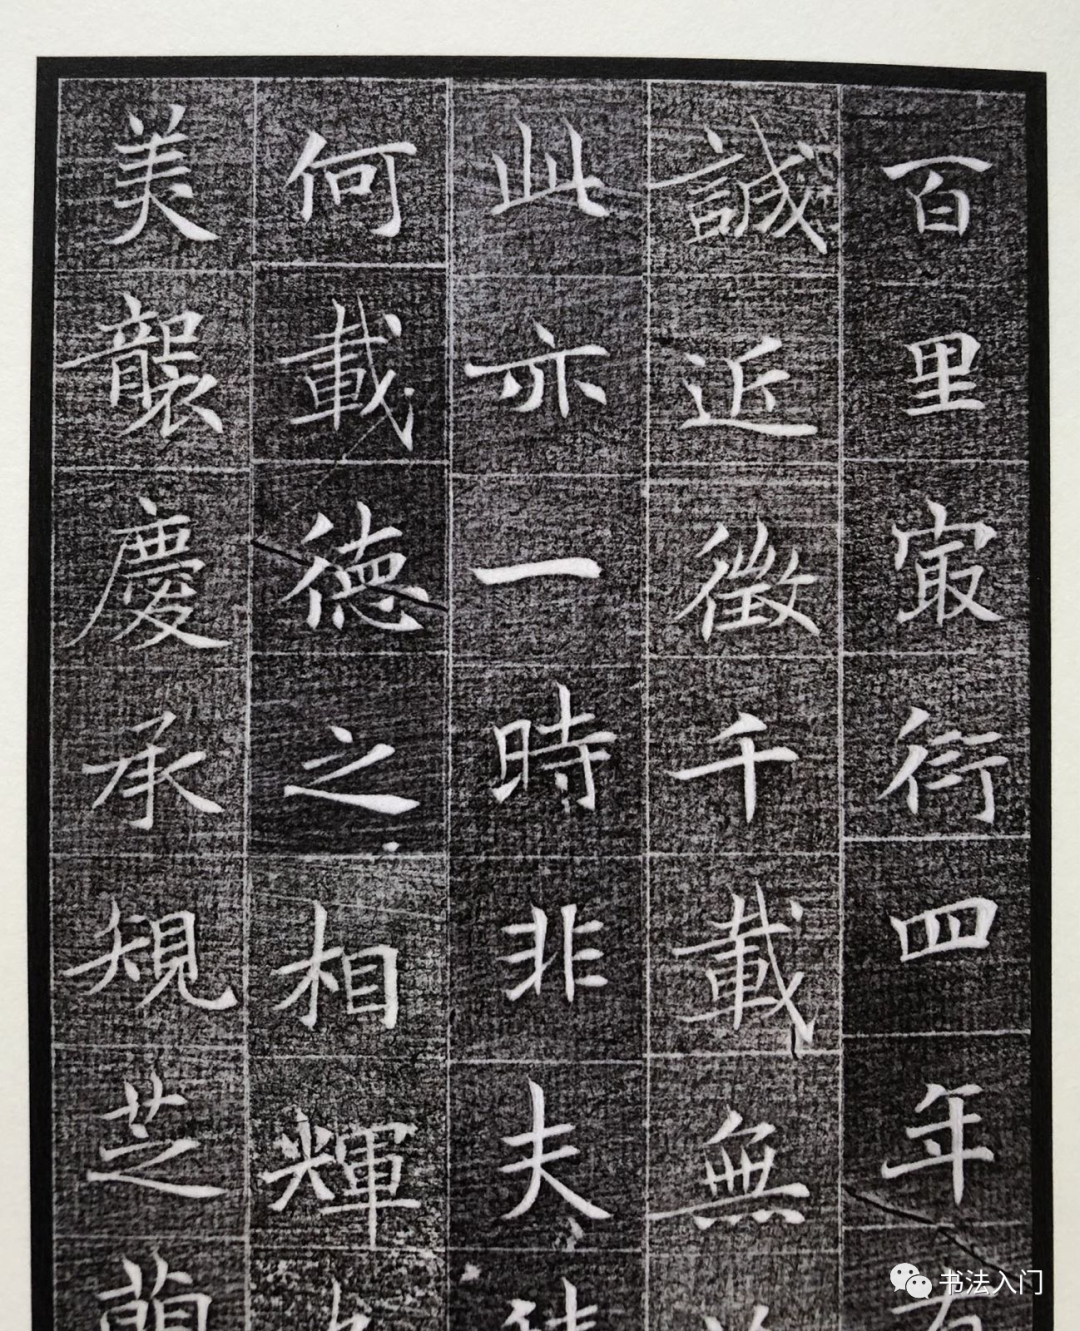 百里㝡衍四年
誠近徵千載無
此亦一時非夫
何載德之相輝
美襲慶承規芝
书法入门